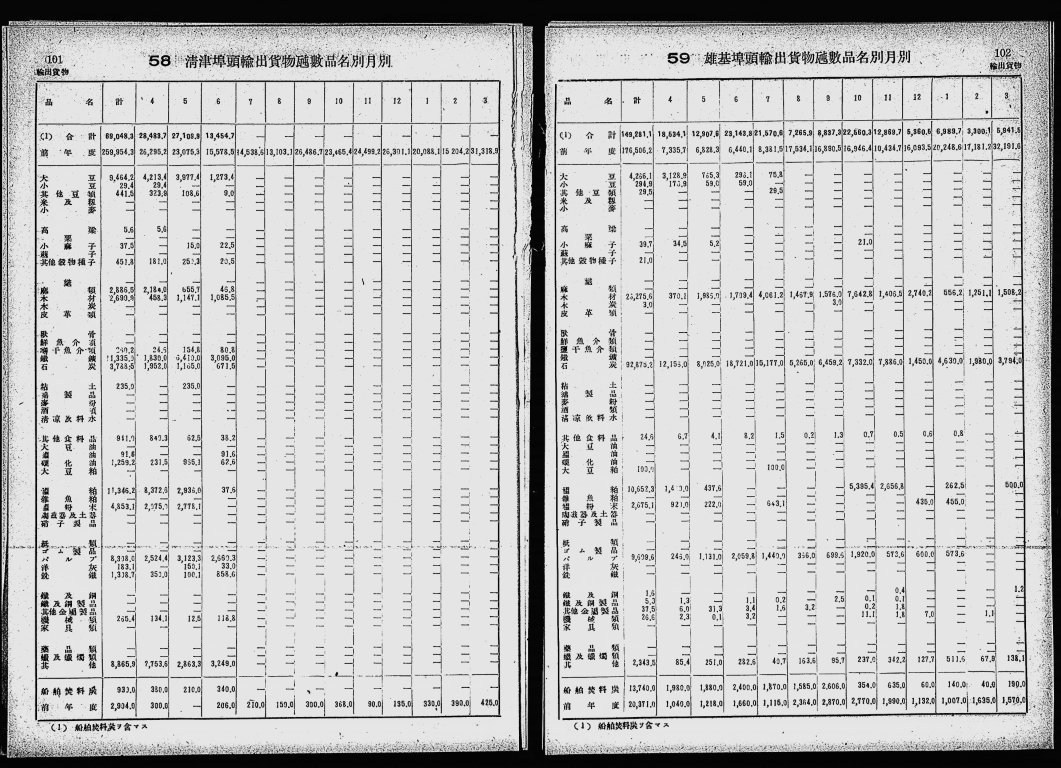 101
輸出貨物
58 清津埠頭輸出貨物噸數品名別月別
品 名 計 4 5 6 7 8 9 10 11 12 1 2 3
(1) 合 計 69,048,3 28,483,7 27,108,9 13,454,7 — — — — — — — — —
前 年 度 259,954,3 26,295,2 23,075,5 15,578,5 14,538,6 13,103,1 26,486,7 23,465,4 24,499,2 26,301,1 20,088,1 15,204,2 31,318,9
大 豆 9,464,2 4,213,4 3,977,4 1,273,4
小 豆 29,4 29,4 —
其 他 豆 類 441,5 323,9 108,6 9,0
米 及 籾 —
小 麥 —
高 粱 5,6 5,6 —
粟 —
小 麻 子 37,5 — 15,0 22,5
蘇 子 —
其他穀物種子 451,8 181,0 20,5
麻 類 2,886,5 2,184,0 655,7 46,8
木 材 2,690,9 458,3 1,147,1 1,085,5
木 炭 —
皮 革 類 —
獸 骨 —
鮮 魚 介 類 —
鹽干魚介類 154,8 80,8
鐵 鑛 11,335,0 1,830,0 6,410,0 3,095,0
石 炭 3,788,5 1,952,0 1,165,0 671,5
粘 土 235,0 — 235,0 —
製 品 —
麥 粉 —
酒 類 —
清涼飲料水 —
其他食料品 62,5 38,2
大 豆 油 —
油 91,6 — — 91,6
礦 化 油 1,259,2 231,5 62,6
大 豆 粕 —
粕 11,346,2 8,372,6 2,936,0 37,6
雜 魚 粕 —
粉 末 4,853,1 2,075,0 2,778,1 —
陶磁器及土器 —
硝 子 製 品 —
紙 類 —
ゴ ム 製 品 —
パ ル プ 2,524,4 3,123,3 2,660,3
洋 灰 183,1 — 150,1 33,0
銑 鐵 858,6
鐵 及 鋼 —
鐵及鋼製品 —
其他金屬製品 —
機 械 類 265,4 134,1 12,5 118,8
家 具 類 —
藥 品 類 —
蠟及蠟燭類 —
其 他 8,865,9 2,753,6 2,863,3 3,249,0
船舶焚料炭 930,0 380,0 210,0 340,0 — — — — — — — — —
前 年 度 2,904,0 300,0 — 206,0 210,0 159,0 300,0 368,0 90,0 135,0 330,0 390,0 425,0
(1) 船舶焚料炭ヲ含マス
102
輸出貨物
59 雄基埠頭輸出貨物噸數品名別月別
品 名 計 4 5 6 7 8 9 10 11 12 1 2 3
(1) 合 計 149,281,1 18,534,1 12,907,6 23,143,8 21,570,6 7,265,9 8,837,3 22,560,3 12,869,7 5,360,6 6,989,7 3,300,1 5,941,5
前 年 度 176,506,2 7,335,7 6,828,3 6,440,1 8,381,5 17,534,1 16,890,5 16,946,4 10,434,7 16,093,5 20,248,6 17,181,2 32,191,6
大 豆 4,266,1 3,128,9 765,3 296,1 75,8
小 豆 294,9 176,9 59,0 59,0
其 他 豆 類 29,5 — — — 29,5
米 及 籾 —
小 麥 —
高 粱 —
粟 —
小 麻 子 39,7 34,5 5,2
蘇 子 —
其他穀物種子 21,0 21,0
麻 類 —
木 材 370,1 1,986,0 1,709,4 4,061,2 1,467,9 1,576,0 7,642,8 1,406,5 2,740,2 556,2 1,251,1 1,508,2
木 炭 3,0 3,0
皮 革 類 —
獸 骨 —
鮮魚介類 —
鹽干魚介類 —
鐵 鑛 —
石 炭 92,875,2 12,156,0 8,025,0 18,721,0 15,177,0 5,265,0 6,459,2 7,332,0 7,886,0 1,450,0 4,630,0 1,980,0 3,794,0
粘 土 —
製 品 —
麥 粉 —
酒 類 —
清涼飲料水 —
其他食料品 24,6 6,7 4,1 8,2 1,5 0,2 1,3 0,7 0,5 0,6 0,8
大 豆 油 —
油 —
礦 化 油 —
大 豆 粕 100,0 100,0
粕 10,652,3 437,6 5,395,4 2,656,8 — 262,5 — 500,0
雜 魚 粕 —
粉 末 2,675,1 921,0 222,0 — 643,1 435,0 455,0
陶磁器及土器 —
硝子製品 —
紙 類 —
ゴ ム 製 品 —
パ ル プ 9,609,6 246,0 1,131,0 2,059,8 1,440,0 366,0 699,6 1,920,0 573,6 600,0 573,6
洋 灰 —
銑 鐵 —
鐵 及 鋼 1,6 0,4 1,2
鐵及鋼製品 5,3 1,3 — 1,1 0,2 — 2,5 0,1 0,1
其他金屬製品 37,5 6,0 31,3 3,4 1,6 3,2 0,2 1,8
機 械 類 26,6 2,3 0,1 3,2 11,1 1,8 7,0 — 1,1
家 具 類 —
藥 品 類 —
蠟及蠟燭類 —
其 他 2,343,5 85,4 251,0 282,6 40,7 163,6 95,7 237,0 342,2 127,7 511,6 67,9 138,1
船舶焚料炭 13,740,0 1,980,0 1,880,0 2,400,0 1,870,0 1,585,0 2,606,0 354,0 635,0 60,0 140,0 40,0 190,0
前 年 度 20,371,0 1,040,0 1,218,0 1,660,0 1,115,0 2,364,0 2,870,0 2,770,0 1,990,0 1,132,0 1,007,0 1,635,0 1,570,0
(1) 船舶焚料炭ヲ含マス